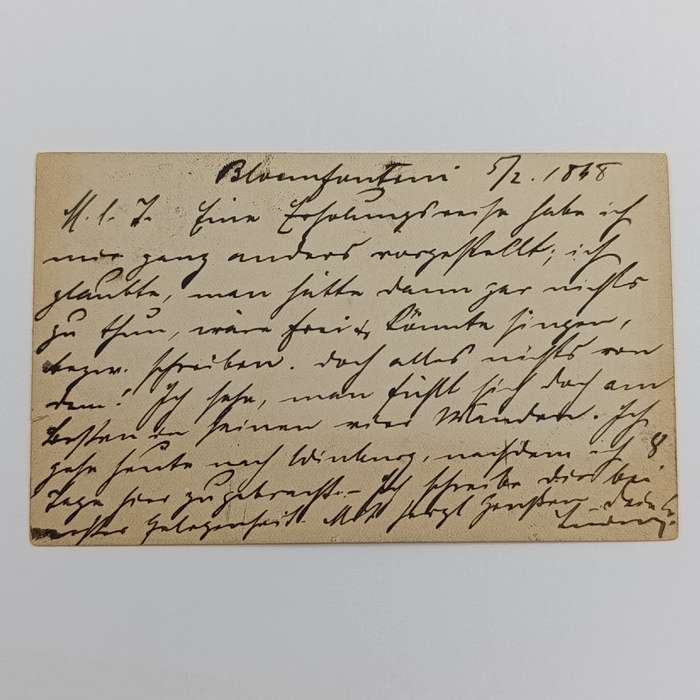 Bloemfontein 5/2. 1898
M. l. J. Eine Erholungsreise habe ich
mir ganz anders vorgestellt; ich
glaubte, man hätte dann gar nichts
zu thun, wäre frei & könnte singen,
bezw. schreiben. doch alles nichts von
dem! Ich sehe, man fühlt sich doch am
besten in seinen vier Wänden. Ich
gehe heute nach Winburg, nachdem ich 8
Tage hier zugebracht. – Ich schreibe dir bei
nächster Gelegenheit. Mit herzl Grüssen Dein
Ludwig